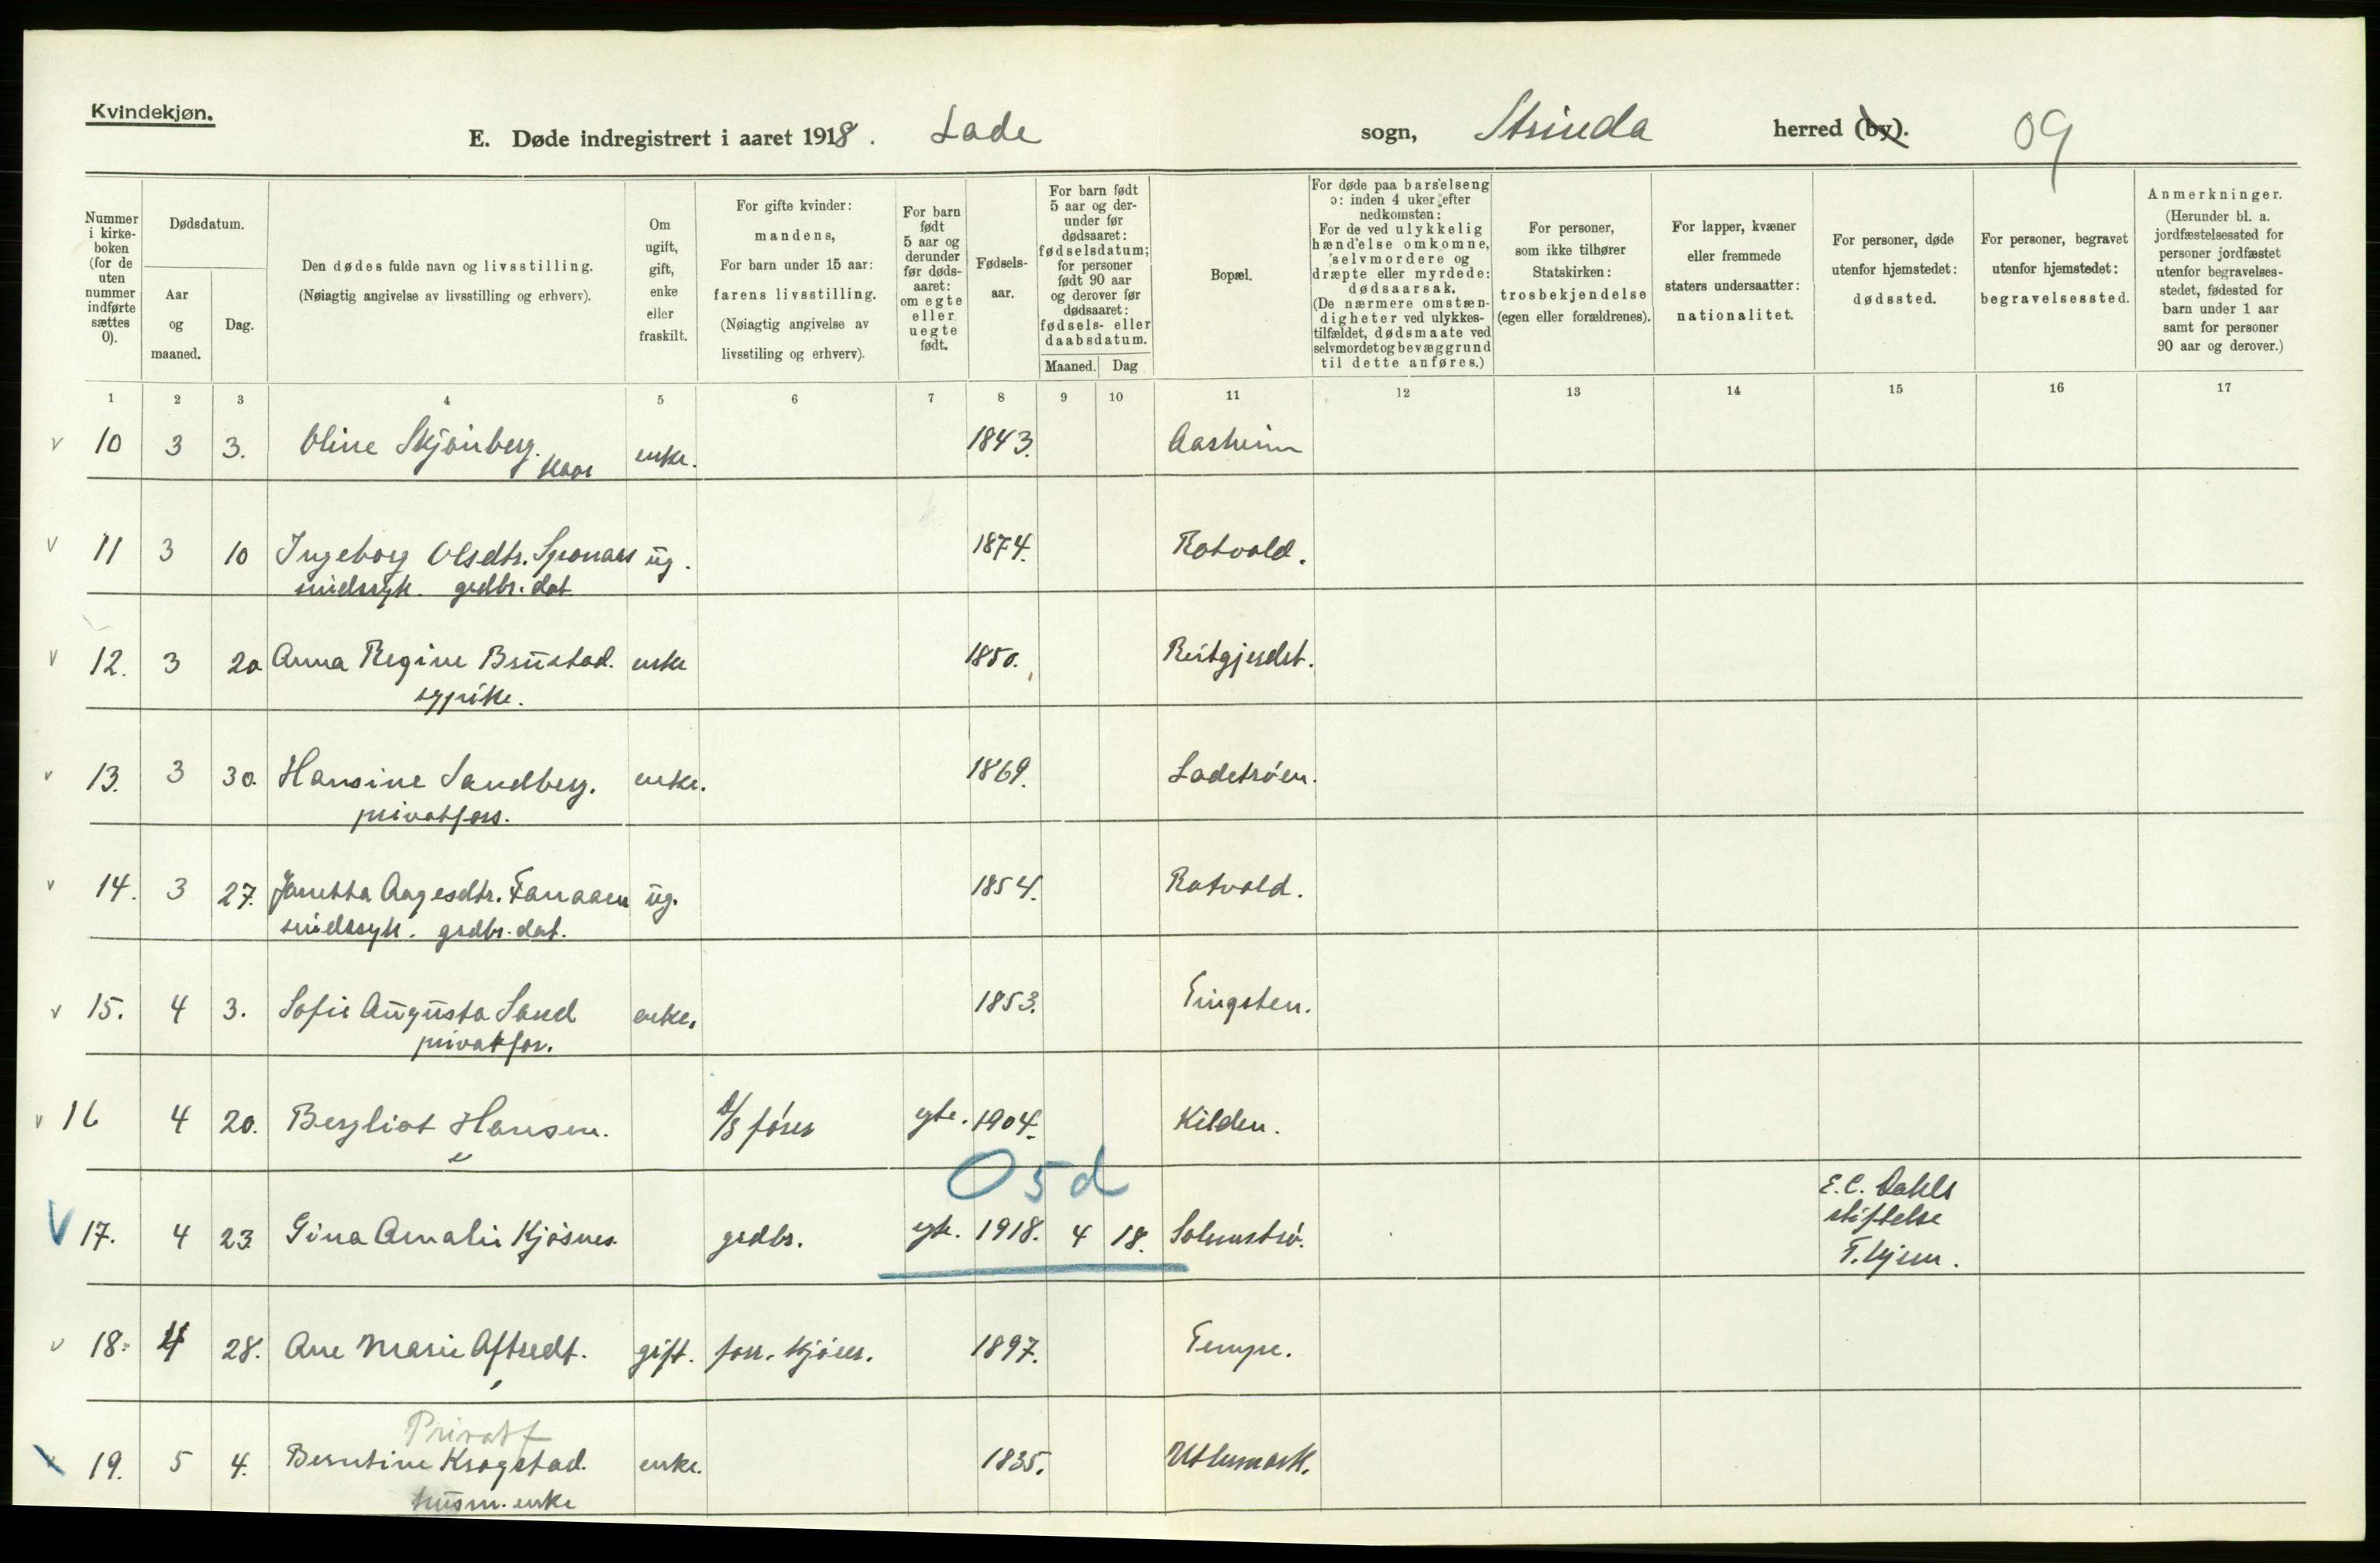 Kvindekjøn.
E. Døde indregistrert i aaret 1918. Lade sogn, Strinda herred (by). 09
Nummer i kirkeboken (for de uten nummer indførte sættes 0).
Dødsdatum.
Aar og maaned.
Dag.
Den dødes fulde navn og livsstilling.
(Nøiagtig angivelse av livsstilling og erhverv).
Om ugift, gift, enke eller fraskilt.
For gifte kvinder: mandens,
For barn under 15 aar: farens livsstilling.
(Nøiagtig angivelse av livsstiling og erhverv).
For barn født 5 aar og derunder før dødsaaret: om egte eller uegte født.
Fødselsaar.
For barn født 5 aar og derunder før dødsaaret: fødselsdatum; for personer født 90 aar og derover før dødsaaret: fødsels- eller daabsdatum.
Maaned. Dag
Bopæl.
For døde paa barselseng ɔ: inden 4 uker efter nedkomsten:
For de ved ulykkelig hændelse omkomne, selvmordere og dræpte eller myrdede: dødsaarsak.
(De nærmere omstændigheter ved ulykkestilfældet, dødsmaate ved selvmordet og bevæggrund til dette anføres.)
For personer, som ikke tilhører Statskirken: trosbekjendelse (egen eller forældrenes).
For lapper, kvæner eller fremmede staters undersaatter: nationalitet.
For personer, døde utenfor hjemstedet: dødssted.
For personer, begravet utenfor hjemstedet: begravelsessted.
Anmerkninger.
(Herunder bl. a. jordfæstelsessted for personer jordfæstet utenfor begravelsesstedet, fødested for barn under 1 aar samt for personer 90 aar og derover.)
1 2 3 4 5 6 7 8 9 10 11 12 13 14 15 16 17
v 10 3 3. Oline Skjönberg. enke. 1843. Aasheim
v 11 3 10 Ingeborg Olsdtr. ug. 1874. Rotvold.
sindssyk. grdbr. dat
v 12. 3 20 Anna Regine Brustad. enke 1850. Reitgjerdet.
sypike.
v 13. 3 30. Hansine Sandberg. enke. 1869. Ladetröen.
privatfors.
v 14. 3 27. Janetta Aagesdtr. Fanaaen ug. 1854. Rotvold.
sindssyk. grdbr. dat.
v 15. 4 3. Sofie Augusta Sand enke. 1853. Tingsten.
privatfor.
v 16 4 20. Bergliot Hansen. förer egte. 1904. Kilden.
0 5 d
V 17. 4 23 Gina Amalie Kjösnes. grdbr. egte. 1918. 4 18. E. C. Dahls
stiftelse
T.hjem.
v 18. 4 28. Ane Marie Aftredt. gift. forr. kjörer. 1897. Tempe.
Privatf
19. 5 4. Berntine Krogstad. enke. 1835.
husm. enke